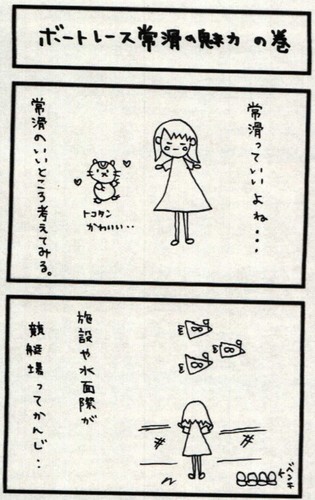 ボートレース常滑の魅力 の巻
常滑っていいよね・・・
トコタン
かわいい・・
常滑のいいところ考えてみる。
施設や水面際が
競艇場ってかんじ・・
ベンチ